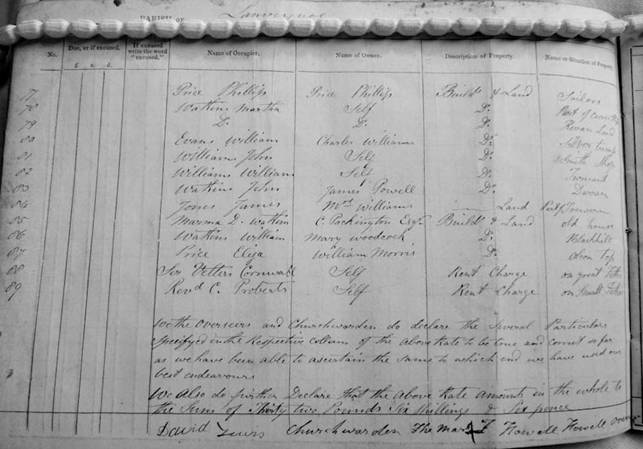 PARISH OF Llanveynoe
No.
Due, or if excused.
If excused write the word "excused."
Name of Occupier.
Name of Owner.
Description of Property.
Name or Situation of Property.
£ s. d.
77 Price Phillips Price Phillips Build.s & Land Tailors
78 Watkins Martha Self D.o Part of
79 D.o D.o D.o Rowan Land
80 Evans William Charles Williams D.o
81 William John Self D.o
82 Williams William Self D.o
83 Watkins John James Powell D.o
84 Jones James Mrs Williams Land
85 Watkin C. Pockington Esq.r Build.s & Land old house
86 Watkins William Mary Woodcock D.o Blackhill
87 Price Eliza William Morris D.o
88 Sir Velters Cornwall Self Rent Charge on great Tithe
89 Rev.d C. Proberts Self Rent Charge on Small Tithe
We the Overseers and Churchwarden do declare the Several Particulars
Specified in the Respective collum of the above Rate to be true and correct as far
as we have been able to ascertain the same to which end we have used our
best endeavours
We also do further Declare that the above Rate amounts in the whole to
the Sum of Thirty two Pounds Six Shillings & Six pence
David Lewis Churchwarden The mark X Howell Howell